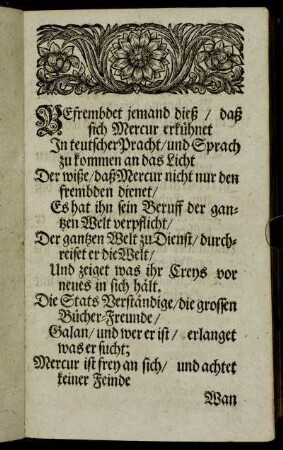 BEfrembdet jemand dieß / daß
sich Mercur erkühnet
In teutscher Pracht / und Sprach
zu kommen an das Licht
Der wiße / daß Mercur nicht nur den
frembden dienet /
Es hat ihn sein Beruff der gan-
tzen Welt verpflicht /
Der gantzen Welt zu Dienst / durch-
reiset er die Welt /
Und zeiget was ihr Creys vor
neues in sich hält.
Die Stats Verständige / die grossen
Bücher-Freunde /
Galan / und wer er ist / erlanget
was er sucht;
Mercur ist frey an sich / und achtet
keiner Feinde
Wan